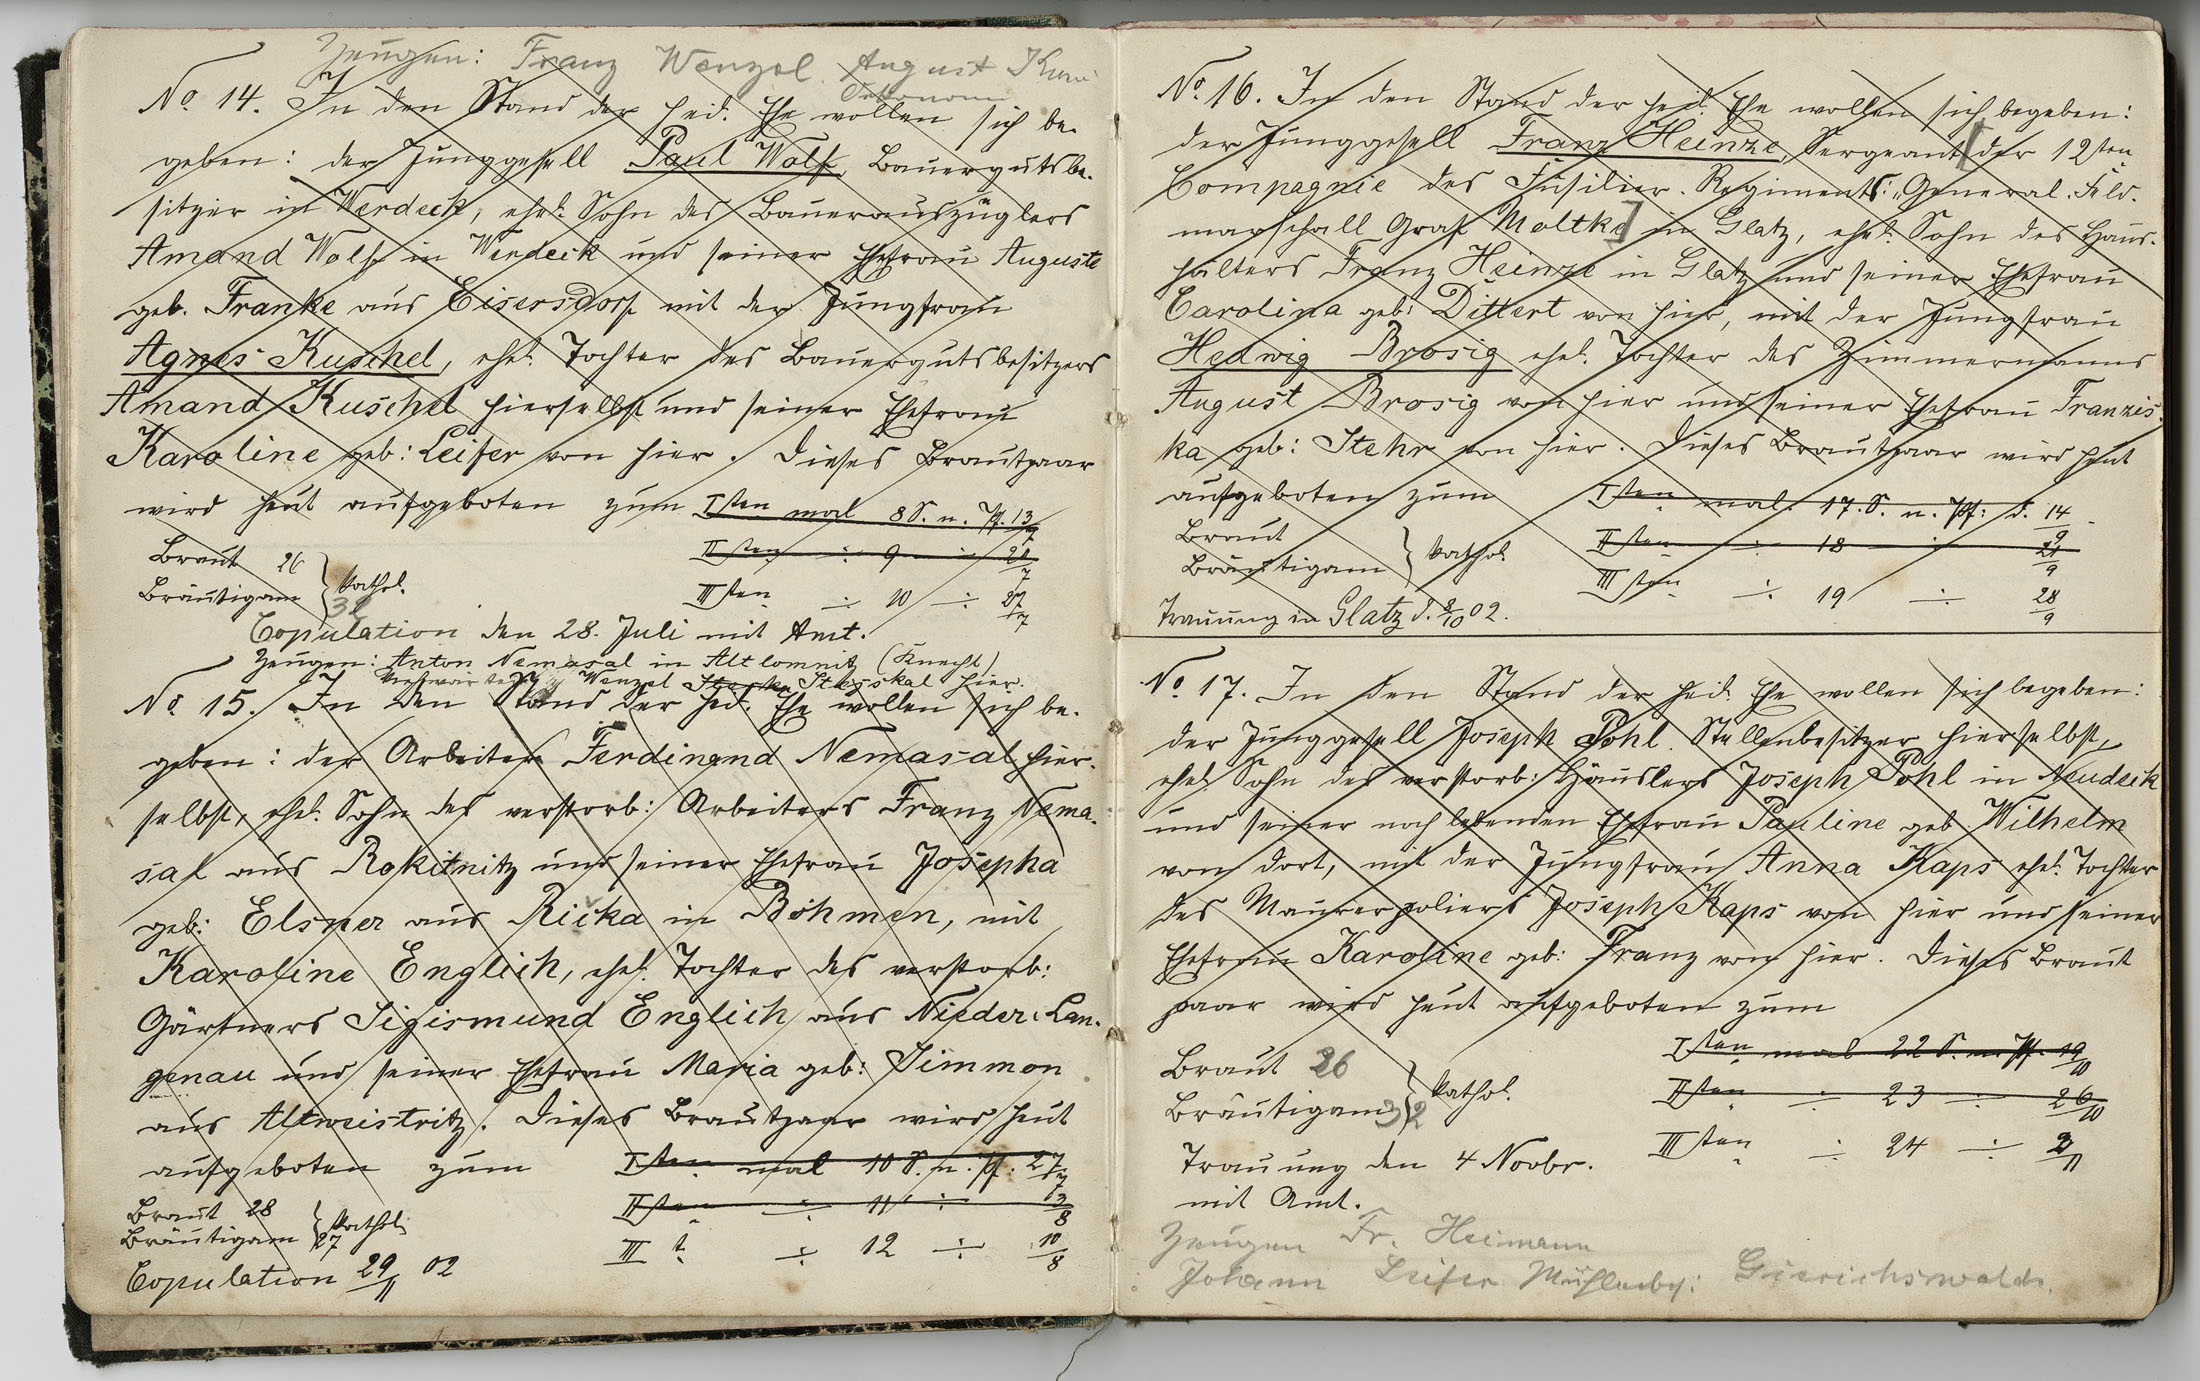 Zeugen: Franz Wenzel. August
Nº 14. In den Stand der heil. Ehe wollen sich be-
geben: der Junggesell Paul Wolf, Bauergutsbe-
sitzer in Werdeck, ehel. Sohn des Bauerauszüglers
Amand Wolf in Werdeck und seiner Ehefrau Auguste
geb. Franke aus Eisersdorf mit der Jungfrau
Agnes Kuschel, ehel. Tochter des Bauergutsbesitzers
Amand Kuschel hierselbst und seiner Ehefrau
Karoline geb: Leifer von hier. Dieses Brautpaar
wird heut aufgeboten zum Isten mal 8 S. n. Pf. 13/7
Braut 26 IIsten ÷ 9 ÷ 20/7
Bräutigam 32 } kathol. IIIsten ÷ 10 ÷ 27/7
Copulation den 28. Juli mit Amt.
Zeugen: Anton Nemasal in Altlomnitz (Knecht)
Wenzel Stejskal hier.
Nº 15. In den Stand der heil. Ehe wollen sich be-
geben: der Arbeiter Ferdinand Nemasal hier-
selbst, ehel. Sohn des verstorb: Arbeiters Franz Nema-
sal aus Rokitnitz und seiner Ehefrau Josepha
geb: Elsner aus Rička in Böhmen, mit
Karoline Englich, ehel. Tochter des verstorb:
Gärtners Sigismund Englich aus Nieder-Lan-
genau und seiner Ehefrau Maria geb: Simmon
aus Altweistritz. Dieses Brautpaar wird heut
aufgeboten zum Isten mal 10 S. n. Pf. 27/7
Braut 28 IIsten ÷ 11 ÷ 3/8
Bräutigam 27 } kathol. III t. ÷ 12 ÷ 10/8
Copulation 29/11 02
Nº 16. In den Stand der heil. Ehe wollen sich begeben:
der Junggesell Franz Heinze, Sergeant [der 12ten
Compagnie des Füsilier-Regiments: „General-Feld-
marschall Graf Moltke] in Glatz, ehel. Sohn des Haus-
hälters Franz Heinze in Glatz und seiner Ehefrau
Carolina geb: Dittert von hier, mit der Jungfrau
Hedwig Brosig ehel. Tochter des Zimmermanns
August Brosig von hier und seiner Ehefrau Franzis-
ka geb: Stehr von hier. Dieses Brautpaar wird heut
aufgeboten zum Isten mal. 17. S. n. Pf: d. 14/9
Braut IIsten ÷ 18 ÷ 21/9
Bräutigam } kathol. IIIsten ÷ 19 ÷ 28/9
Trauung in Glatz d. 8/10 02.
Nº 17. In den Stand der heil. Ehe wollen sich begeben:
der Junggesell Joseph Pohl. Stellenbesitzer hierselbst,
ehel. Sohn des verstorb: Häuslers Joseph Pohl in Neudeck
und seiner noch lebenden Ehefrau Pauline geb. Wilhelm
von dort, mit der Jungfrau Anna Kaps ehel. Tochter
des Maurerpoliers Joseph Kaps von hier und seiner
Ehefrau Karoline geb: Franz von hier. Dieses Braut
paar wird heut aufgeboten zum
Isten mal 22 S. n. Pf. 19/10
Braut 26 IIsten ÷ 23 ÷ 26/10
Bräutigam 32 } kathol. IIIsten ÷ 24 ÷ 2/11
Trauung den 4 Novbr.
mit Amt.
Zeugen Fr. Heimann
Johann Leifer Mühlenbes: Gierichswalde.